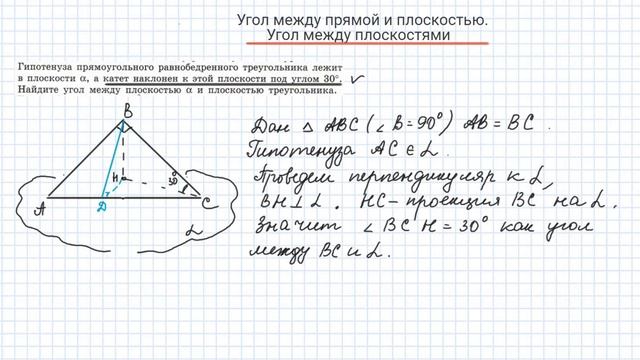 Угол между прямой и плоскостью.
Угол между плоскостями
Гипотенуза прямоугольного равнобедренного треугольника лежит
в плоскости α, а катет наклонен к этой плоскости под углом 30°.
Найдите угол между плоскостью α и плоскостью треугольника.
Дан Δ ABC (∠B=90°) AB=BC.
Гипотенуза AC ∈ α.
Проведем перпендикуляр к α,
BH⊥α. HC-проекция BC на α.
Значит ∠BCH=30° как угол
между BC и α.
B
H
30°
A
D
C
α